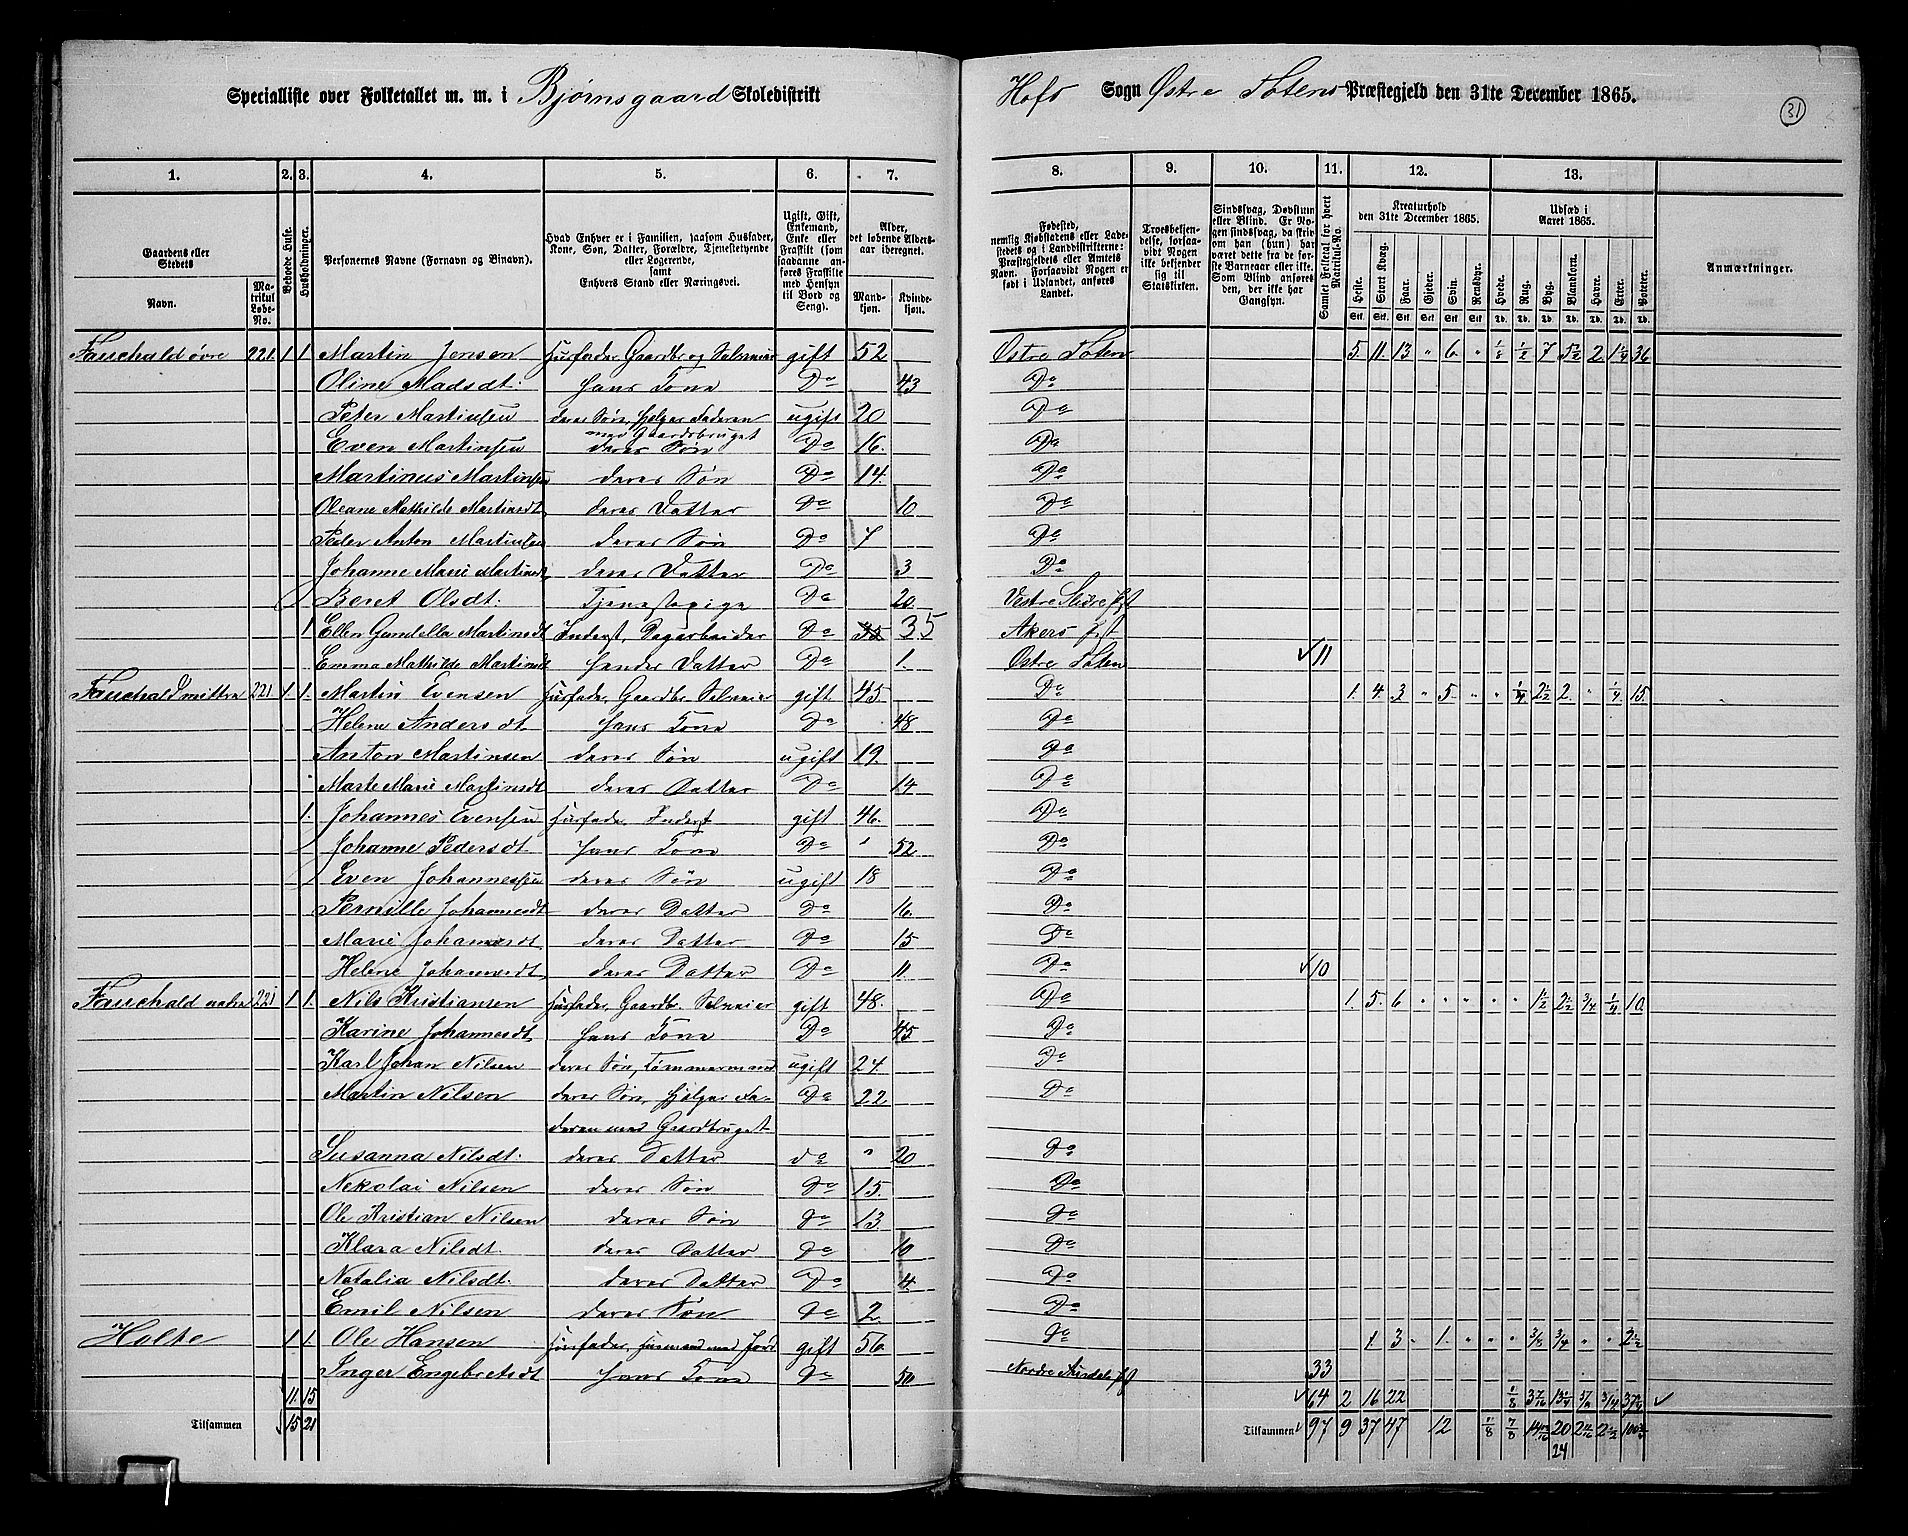 Specialliste over Folketallet m. m. i Bjørnsgaard Skoledistrikt
Hofs Sogn Østre Totens Præstegjeld den 31te December 1865.
31
1. 2. 3. 4. 5. 6. 7. 8. 9. 10. 11. 12. 13.
Gaardens eller Stedets
Navn.
Matrikul Løbe-No.
Beboede Huse.
Husholdninger.
Personernes Navne (Fornavn og Binavn).
Hvad Enhver er i Familien, saasom Husfader, Kone, Søn, Datter, Forældre, Tjenestetyende eller Logerende, samt Enhvers Stand eller Næringsvei.
Ugift, Gift, Enkemand, Enke eller Fraskilt (som saadanne anføres Fraskilte med Hensyn til Bord og Seng).
Alder, det løbende Aldersaar iberegnet.
Mandkjøn. Kvindekjøn.
Fødested, nemlig Kjøbstadens eller Ladestedets og i Landdistrikterne: Præstegjeldets eller Amtets Navn. Forsaavidt Nogen er født i Udlandet, anføres Landet.
Troesbekjendelse, forsaavidt Nogen ikke bekjender sig til Statskirken.
Sindssvag, Døvstum eller Blind. Er Nogen sindssvag, da skriv om han (hun) har været dette fra de første Barneaar eller ikke. Som Blind anføres den, der ikke har Gangsyn.
Samlet Folketal for hvert Matrikul-No.
Kreaturhold den 31te December 1865.
Heste. Stort Kvæg. Faar. Gjeder. Svin. Rensdyr.
Udsæd i Aaret 1865.
Hvede. Rug. Byg. Blandkorn. Havre. Erter. Poteter.
Anmærkninger.
Fauchald øvre 221. 1 1. Martin Jensen Husfader, Gaardbr og Selveier gift 52 Østre Toten 5. 11. 13 " 6. " 1/8 1/2 7 5 1/2 2 1 1/4 36
Oline Madsdt: hans Kone Do 43 Do
Peter Martinsen deres Søn, hjelper Faderen med Gaardsbruget ugift 20 Do
Even Martinsen deres Søn Do 16. Do
Martinus Martinsen deres Søn Do 14. Do
Oleane Mathilde Martinsdt deres Datter Do 10 Do
Peder Anton Martinsen deres Søn Do 7 Do
Johanne Marie Martinsdt deres Datter Do 3 Do
Beret Olsdt: Tjenestepige Do 20 Vestre Slidre Pgt
1 Ellen Gundella Martinsdt Inderst, Dagarbeider Do 35 35 Akers Pgt
Emma Mathilde Martinsdt hendes Datter Do 1. Østre Toten √11
Fauchald mittre 221. 1. 1. Martin Evensen Husfader, Gaardbr Selveier gift 45 Do 1. 4. 3 " 5. " " 1/4 2 1/2 2. " 1/4. 15.
Helene Andersdt hans Kone Do 48 Do
Anton Martinsen deres Søn ugift 19. Do
Marte Marie Martinsdt deres Datter Do 14 Do
1. Johannes Evensen Husfader, Inderst gift 46. Do
Johanne Pedersdt. hans Kone Do 52 Do
Even Johannessen deres Søn ugift 18 Do
Pernille Johannesdt deres Datter Do 16. Do
Marie Johannesdt. deres Datter Do 15 Do
Helene Johannesdt deres Datter Do 11. Do √10
Fauchald 221 1 1. Nils Kristiansen Husfader, Gaardbr. Selveier gift 48. Do 1. 5. 6 " " " " " 1 1/2 2 1/2 3/4 1/4 10.
Karine Johannesdt hans Kone Do 45. Do
Karl Johan Nilsen deres Søn, Tømmermand ugift 24. Do
Martin Nilsen deres Søn, hjelper Fa- Do 22 Do
deren med Gaardbruget
Susanna Nilsdt: deres Datter do " 20 Do
Nekolai Nilsen deres Søn Do 15. Do
Ole Kristian Nilsen deres Søn do 13 Do
Klara Nilsdt deres Datter do 10 Do
Natalia Nilsdt. deres Datter Do 4. Do
Emil Nilsen deres Søn do 2 Do
Holte 1. 1. Ole Hansen Husfader, Husmand med Jord gift 56 do 1. 3. " 1. " " " 3/4 " " 2 1/2
Inger Engebretsdt hans Kone do 50 Nordre 33
11. 15 √64 2 16 22 1/8 3/4
Tilsammen 15 21 Tilsammen 97 9 37 47 12 7/8 20
24